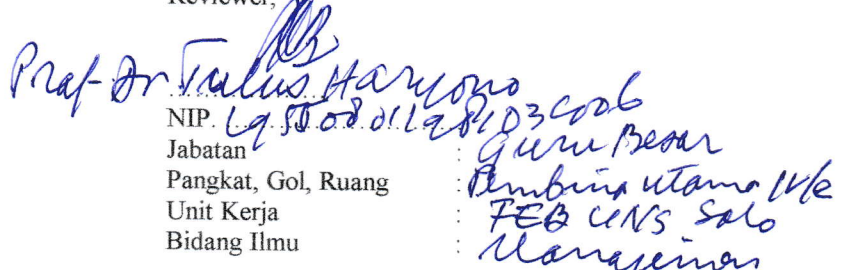 Reviewer,
Prof. Dr Tulus Haryono
NIP. 195508011981031006
Jabatan : Guru Besar
Pangkat, Gol, Ruang : Pembina Utama IV/e
Unit Kerja : FEB UNS Solo
Bidang Ilmu : Manajemen